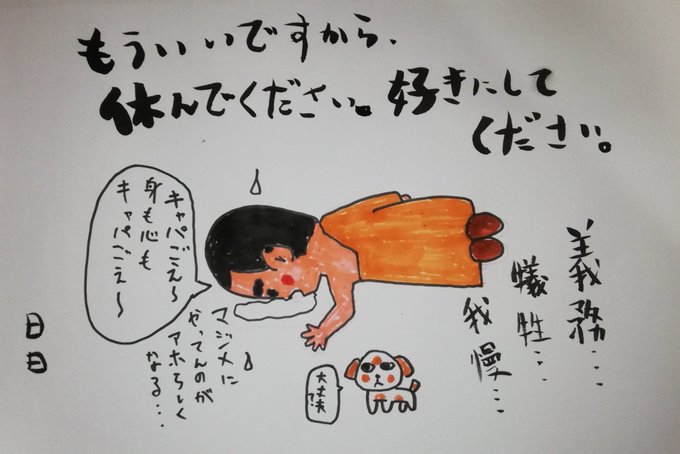 もういいですから、
休んでください。好きにして
ください。
キャパごえ〜
身も心も
キャパごえ〜
義務…
犠牲…
我慢…
マジメに
やってんのが
アホらしく
なる…
大丈夫?
日日